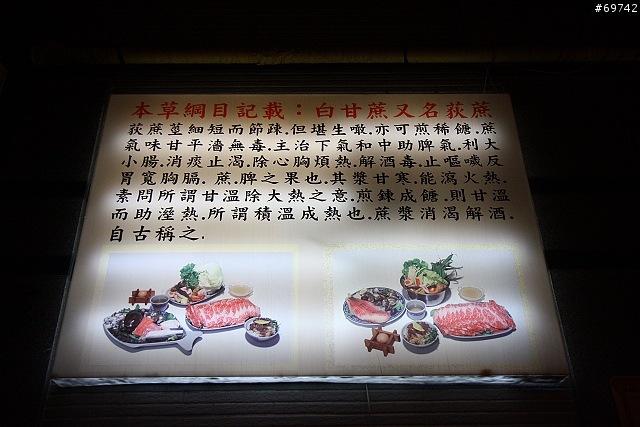 #69742
本草綱目記載：白甘蔗又名荻蔗
荻蔗莖細短而節疎.但堪生噉.亦可煎稀餹.蔗
氣味甘平濇無毒.主治下氣和中助脾氣.利大
小腸.消痰止渴.除心胸煩熱.解酒毒.止嘔噦反
胃寬胸膈. 蔗.脾之果也.其漿甘寒.能瀉火熱.
素問所謂甘溫除大熱之意.煎鍊成餹.則甘溫
而助溼熱.所謂積溫成熱也.蔗漿消渴解酒.
自古稱之.